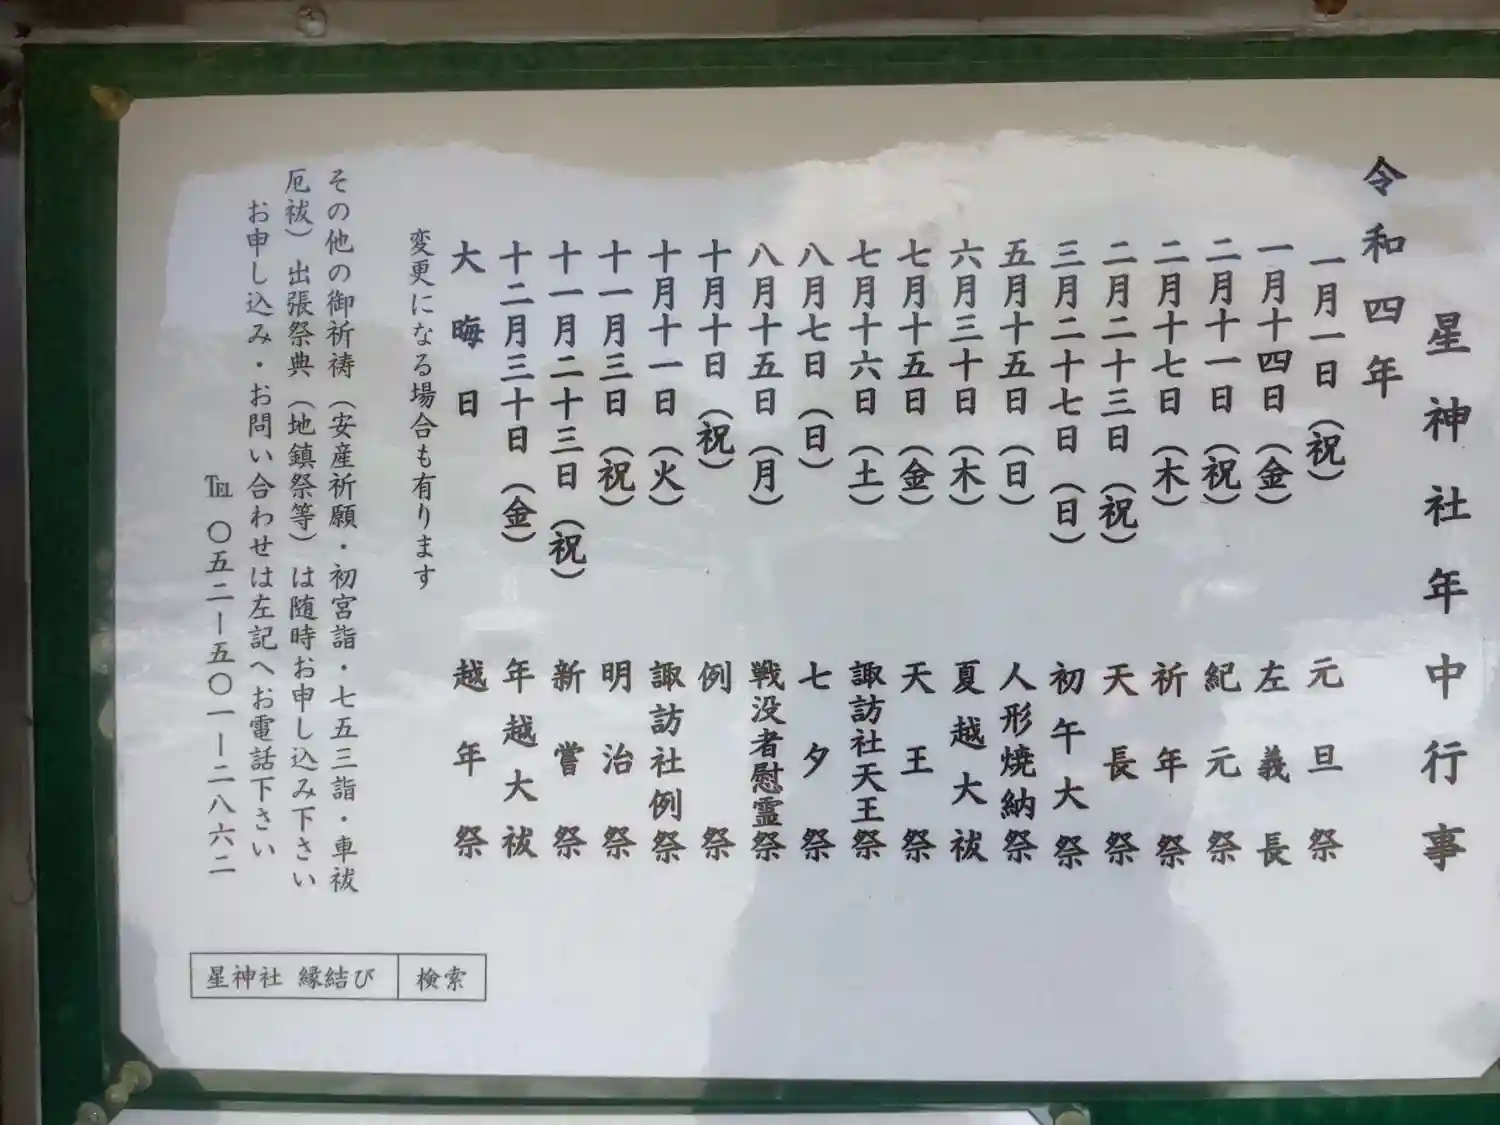 星神社年中行事
令和四年
一月一日（祝）　元旦祭
一月十四日（金）　左義長
二月十一日（祝）　紀元祭
二月十七日（木）　祈年祭
二月二十三日（祝）　天長祭
三月二十七日（日）　初午大祭
五月十五日（日）　人形焼納祭
六月三十日（木）　夏越大祓
七月十五日（金）　天王祭
七月十六日（土）　諏訪社天王祭
八月七日（日）　七夕祭
八月十五日（月）　戦没者慰霊祭
十月十日（祝）　例祭
十月十一日（火）　諏訪社例祭
十一月三日（祝）　明治祭
十一月二十三日（祝）　新嘗祭
十二月三十日（金）　年越大祓
大晦日　越年祭
変更になる場合も有ります
その他の御祈祷（安産祈願・初宮詣・七五三詣・車祓
厄祓）出張祭典（地鎮祭等）は随時お申し込み下さい
お申し込み・お問い合わせは左記へお電話下さい
℡ 〇五二ー五〇一ー二八六二
星神社 縁結び 検索